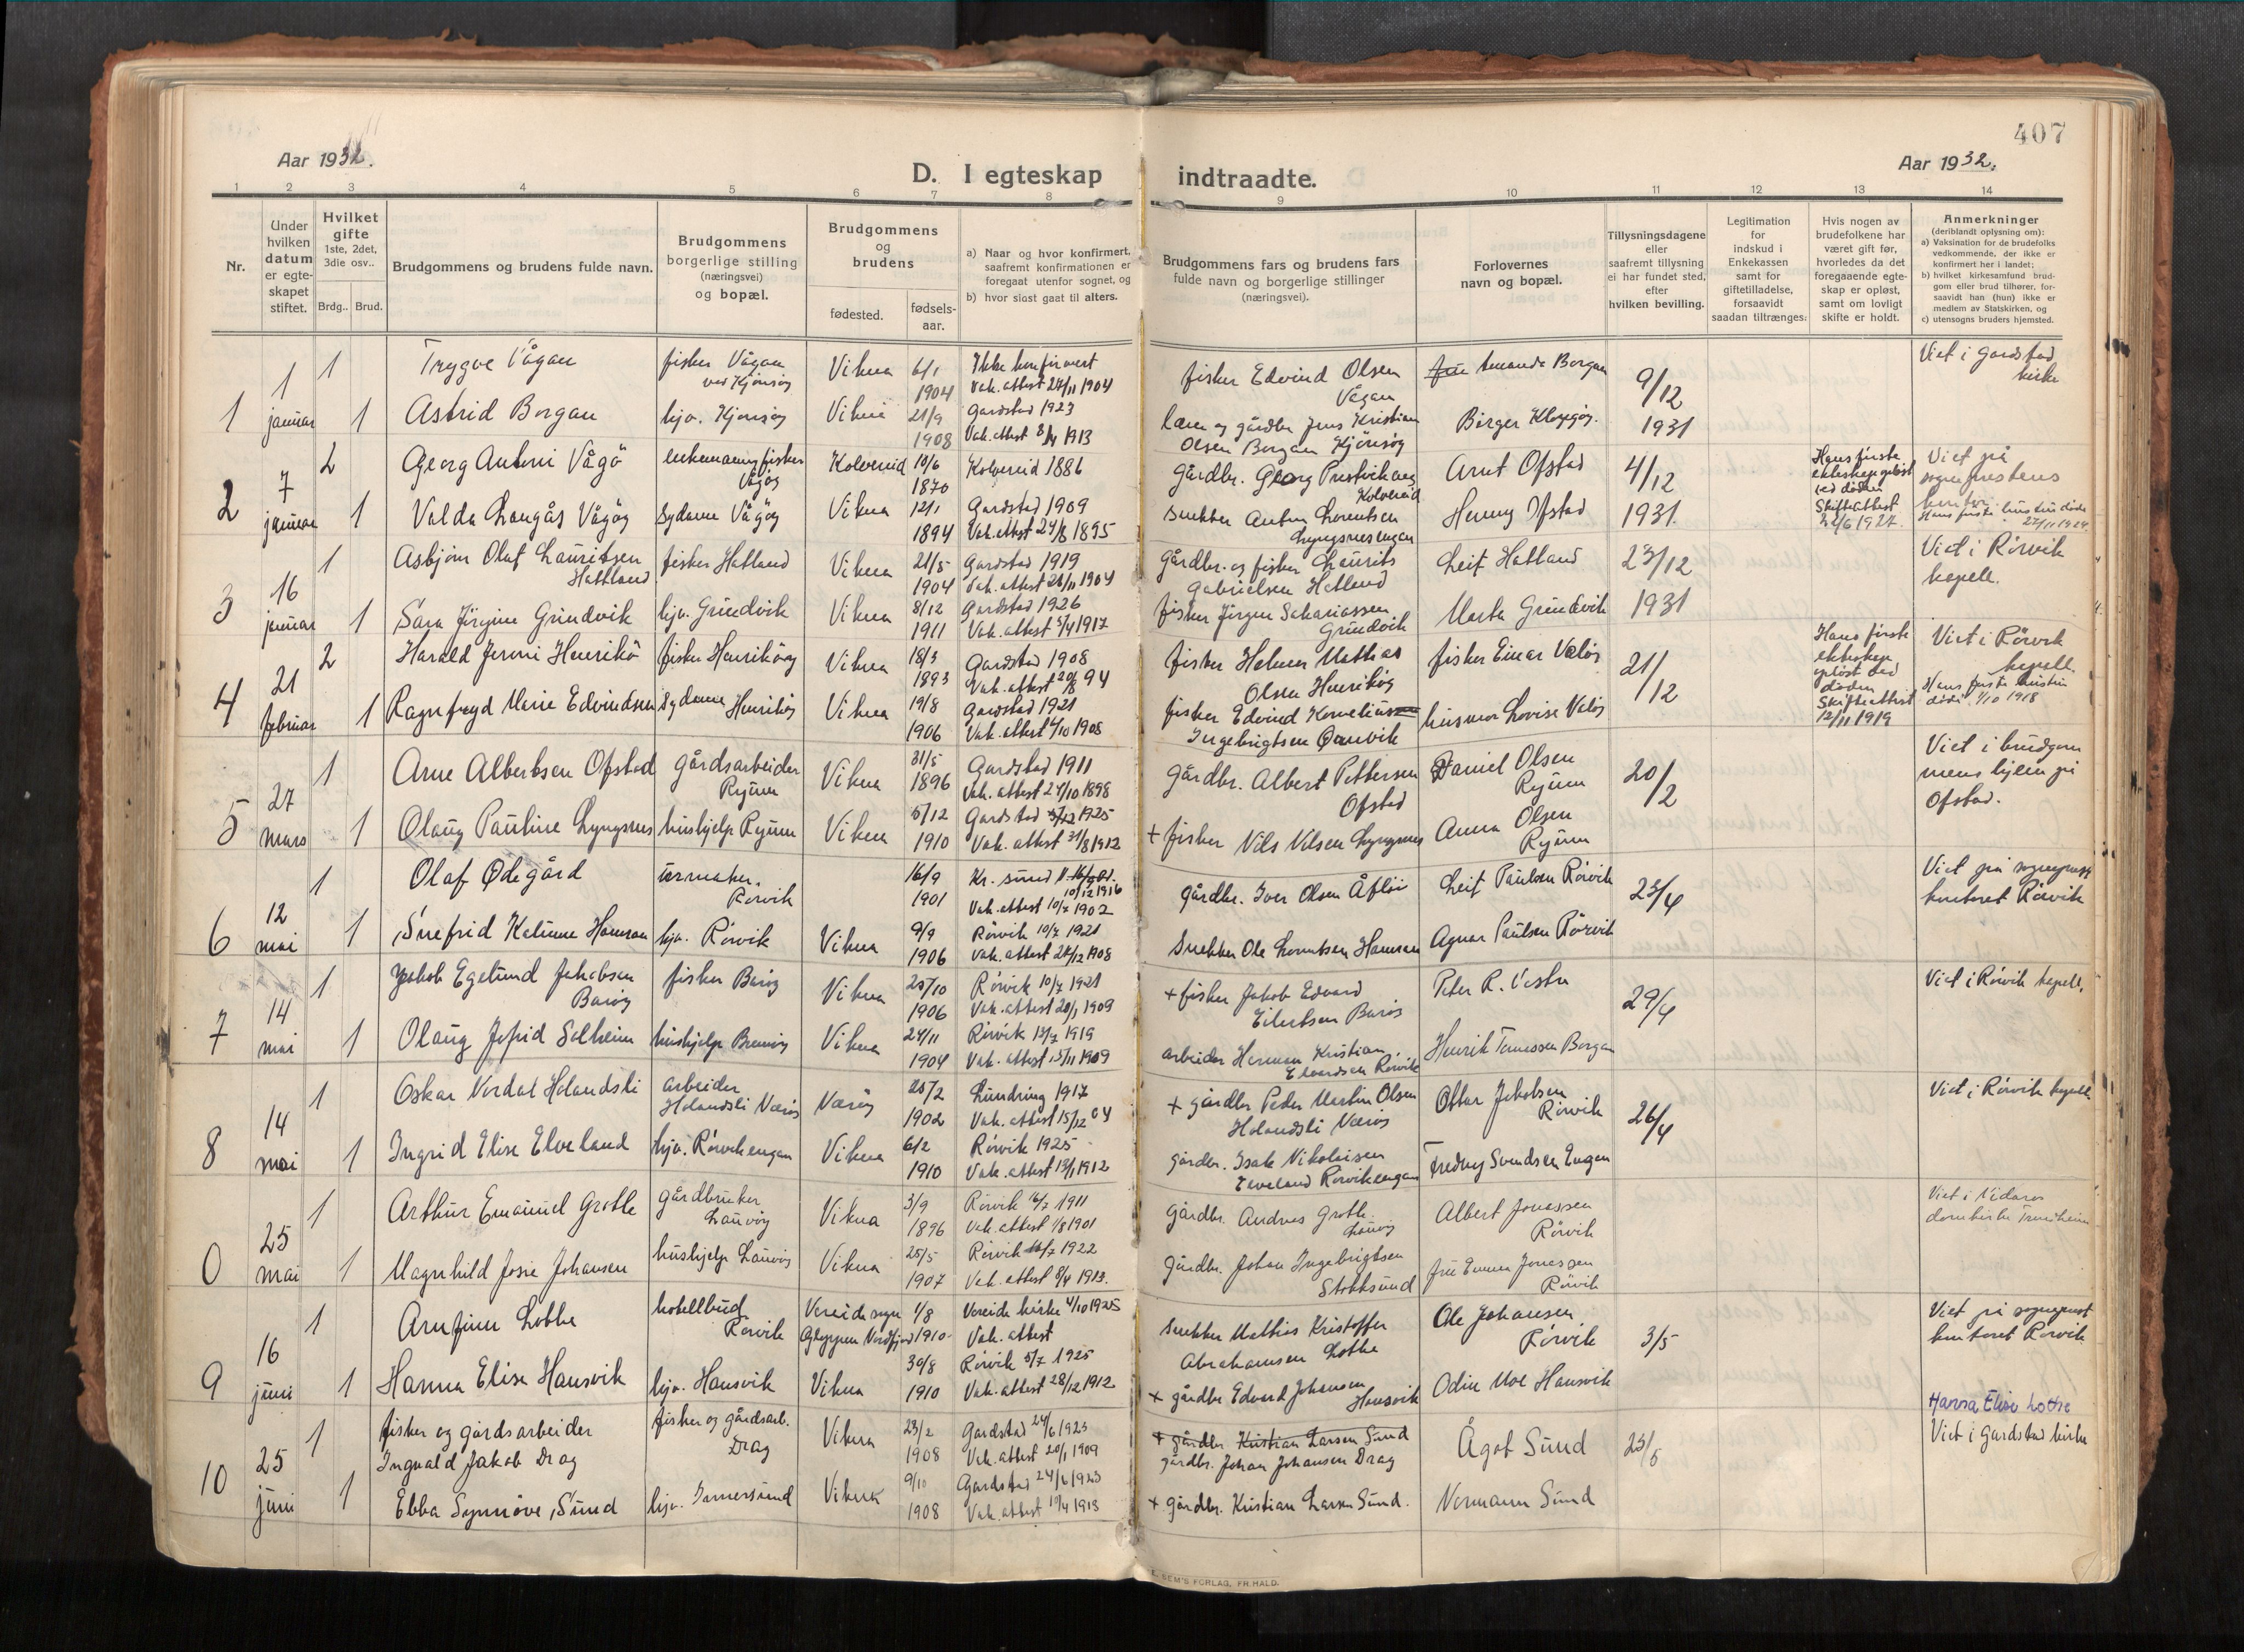 407
Aar 1932.
Aar 1932.
D. I egteskap indtraadte.
1 2 3 4 5 6 7 8 9 10 11 12 13 14
Nr.
Under hvilken datum er egteskapet stiftet.
Hvilket gifte
1ste, 2det, 3die osv..
Brdg.. Brud.
Brudgommens og brudens fulde navn.
Brudgommens borgerlige stilling (næringsvei) og bopæl.
Brudgommens og brudens
fødested.
fødsels-aar.
a) Naar og hvor konfirmert, saafremt konfirmationen er foregaat utenfor sognet, og
b) hvor sidst gaat til alters.
Brudgommens fars og brudens fars fulde navn og borgerlige stillinger (næringsvei).
Forlovernes navn og bopæl.
Tillysningsdagene eller saafremt tillysning ei har fundet sted, efter hvilken bevilling.
Legitimation for indskud i Enkekassen samt for giftetilladelse, forsaavidt saadan tiltrænges:
Hvis nogen av brudefolkene har været gift før, hvorledes da det foregaaende egteskap er opløst, samt om lovligt skifte er holdt.
Anmerkninger
(deriblandt oplysning om):
a) Vaksination for de brudefolks vedkommende, der ikke er konfirmert her i landet;
b) hvilket kirkesamfund brudgom eller brud tilhører, forsaavidt han (hun) ikke er medlem av Statskirken, og
c) utensogns bruders hjemsted.
1 1 januar 1 Trygve Vågan fisker Vågan ved Kjönsöy Vikna 6/1 1904 Ikke konfirmert Vak. attest 27/11 1904 fisker Edvind Olsen Vågan fru Amanda Borgan 9/12 1931 Viet i Gardstad kirke
1 Astrid Borgan hjv. Kjönsöy Vikna 21/9 1908 Gardstad 1923 Vak. attest 8/4 1913 lærer og gårdbr Jens Kristian Olsen Borgan Kjönsöy Birger
2 7 januar 2 Georg Antoni Vågö enkemann fisker Vågöy Kolvereid 10/6 1870 Kolvereid 1886 gårdbr. Georg Kolvereid Arnt Ofstad 4/12 1931. Hans første ekteskap opløst ved döden Skifteattest 22/6 1927. Viet på sogneprestens kontor. Hans første hustru döde 27/11 1924
1 Valda Langås Vågöy sydame Vågöy Vikna 12/1 1894 Gardstad 1909 Vak. attest 24/8 1895 snekker Anton Lorentsen Lyngsnesengan Henny Ofstad
3 16 januar 1 Asbjörn Olaf Lauritsen Hatland fisker Hatland Vikna 21/5 1904 Gardstad 1919 Vak. attest 26/11 1904 gårdbr. og fisker Laurits Gabrielsen Hatland Leif Hatland 23/12 1931 Viet i Rörvik kapell.
1 Sara Jörgine Grindvik hjv. Grindvik Vikna 8/12 1911 Gardstad 1926 Vak. attest 5/4 1917 fisker Jörgen Sakariassen Grindvik Marta Grindvik
4 21 februar 2 Harald Jermi Henrikö fisker Henriköy Vikna 18/3 1893 Gardstad 1908 Vak. attest 20/8 94 fisker Helmer Mathias Olsen Henriköy fisker Einar Valöy 21/12 Hans første ekteskap opløst ved döden Skifteattest 12/11 1919 Viet i Rörvik kapell. Hans første hustru döde 1/10 1918
1 Ragnfryd Marie Edvindsen sydame Henriköy Vikna 19/8 1906 Gardstad 1921 Vak. attest 4/10 1908 fisker Edvind Kornelius Ingebrigtsen husmor Lovise Valöy
5 27 mars 1 Arne Albertsen Ofstad gårdsarbeider Ryum Vikna 31/5 1896 Gardstad 1911 Vak. attest 24/10 1898 gårdbr. Albert Pettersen Ofstad Daniel Olsen Ryum 20/2 Viet i brudgommens hjem på Ofstad.
1 Olaug Pauline Lyngsnes hushjelp Ryum Vikna 5/12 1910 Gardstad 1925 Vak. attest 31/8 1912 + fisker Nils Nilsen Lyngsnes Anna Olsen Ryum
6 12 mai 1 Olaf Ødegård urmaker. Rörvik 16/9 1901 Kr. sund 10/12 1916 Vak. attest 10/7 1902 gårdbr. Iver Olsen Åfløi Leif Paulsen Rörvik 23/4 Viet på sogneprest kontoret Rörvik
1 Snefrid Kaline Hamran hjv. Rörvik Vikna 9/9 1906 Rörvik 10/7 1921 Vak. attest 28/12 1908 snekker Ole Lorentsen Hamran Agnar Paulsen Rörvik
7 14 mai 1 Jakob Egelund Jakobsen Baröy fisker Baröy Vikna 25/10 1906 Rörvik 10/7 1921 Vak. attest 20/1 1909 + fisker Jakob Edvard Eilertsen Baröy Peter R. 29/4 Viet i Rörvik kapell.
1 Olaug Jofrid Solheim hushjelp Vikna 24/11 1904 Rörvik 13/7 1919 Vak. attest 15/11 1909 arbeider Herman Kristian Edvardsen Rörvik Henrik Borgan
8 14 mai 1 Oskar Verdal Holandsli arbeider Holandsli Næröy Næröy 20/2 1902 Lundring 1917 Vak. attest 15/12 04 + gårdbr Peder Martin Olsen Holandsli Næröy Ottar Jakobsen Rörvik 26/4 Viet i Rörvik kapell
1 Ingrid Elise Elveland hjv. Rörvikengan Vikna 6/2 1910 Rörvik 1925 Vak. attest 13/1 1912 gårdbr. Isak Nikolaisen Elveland Rörvikengan Fredny Svendsen Engan
0 25 mai 1 Arthur Emanuel Grotle gårdbruker Lauvöy Vikna 3/9 1896 Rörvik 16/7 1911 Vak. attest 1/8 1901 gårdbr. Andreas Grotle. Lauvöy Albert Jonassen Rörvik Viet i Nidaros domkirke Trondheim
1 Magnhild Josie Johansen hushjelp Lauvöy Vikna 25/5 1907 Rörvik 1922 Vak. attest 8/4 1913. gårdbr. Johan Ingebrigtsen Stokksund fru Emma Jonassen Rörvik
9 16 juni 1 Arnfinn Lothe hotellbud Rörvik Vereide sogn Gloppen Nordfjord 1/8 1910 Vereide kirke 4/10 1925 Vak. attest snekker Mathias Kristoffer Abrahamsen Lothe Ole Johansen Rörvik 3/5 Viet på sogneprest kontoret Rörvik
1 Hanna Elise Hansvik hjv. Hansvik Vikna 30/8 1910 Rörvik 5/7 1925 Vak. attest 28/12 1912 + gårdbr Edvard Johansen Hansvik Odin Moe Hansvik Hanna Elise Lothe
10 25 juni 1 fisker og gårdsarbeider Ingvald Jakob Drag fisker og gårdsarb. Drag Vikna 23/2 1908 Gardstad 24/6 1923 Vak. attest 20/1 1909 + gårdbr Kristian Larsen Sund gårdbr. Johan Johansen Drag Ågot Sund 25/5 Viet i Gardstad kirke
1 Ebba Synnöve Sund hjv. Vikna 9/10 1908 Gardstad 24/6 1923 Vak. attest 10/4 1913 + gårdbr. Kristian Larsen Sund. Normann Sund
SEM'S FORLAG, FR.HALD.